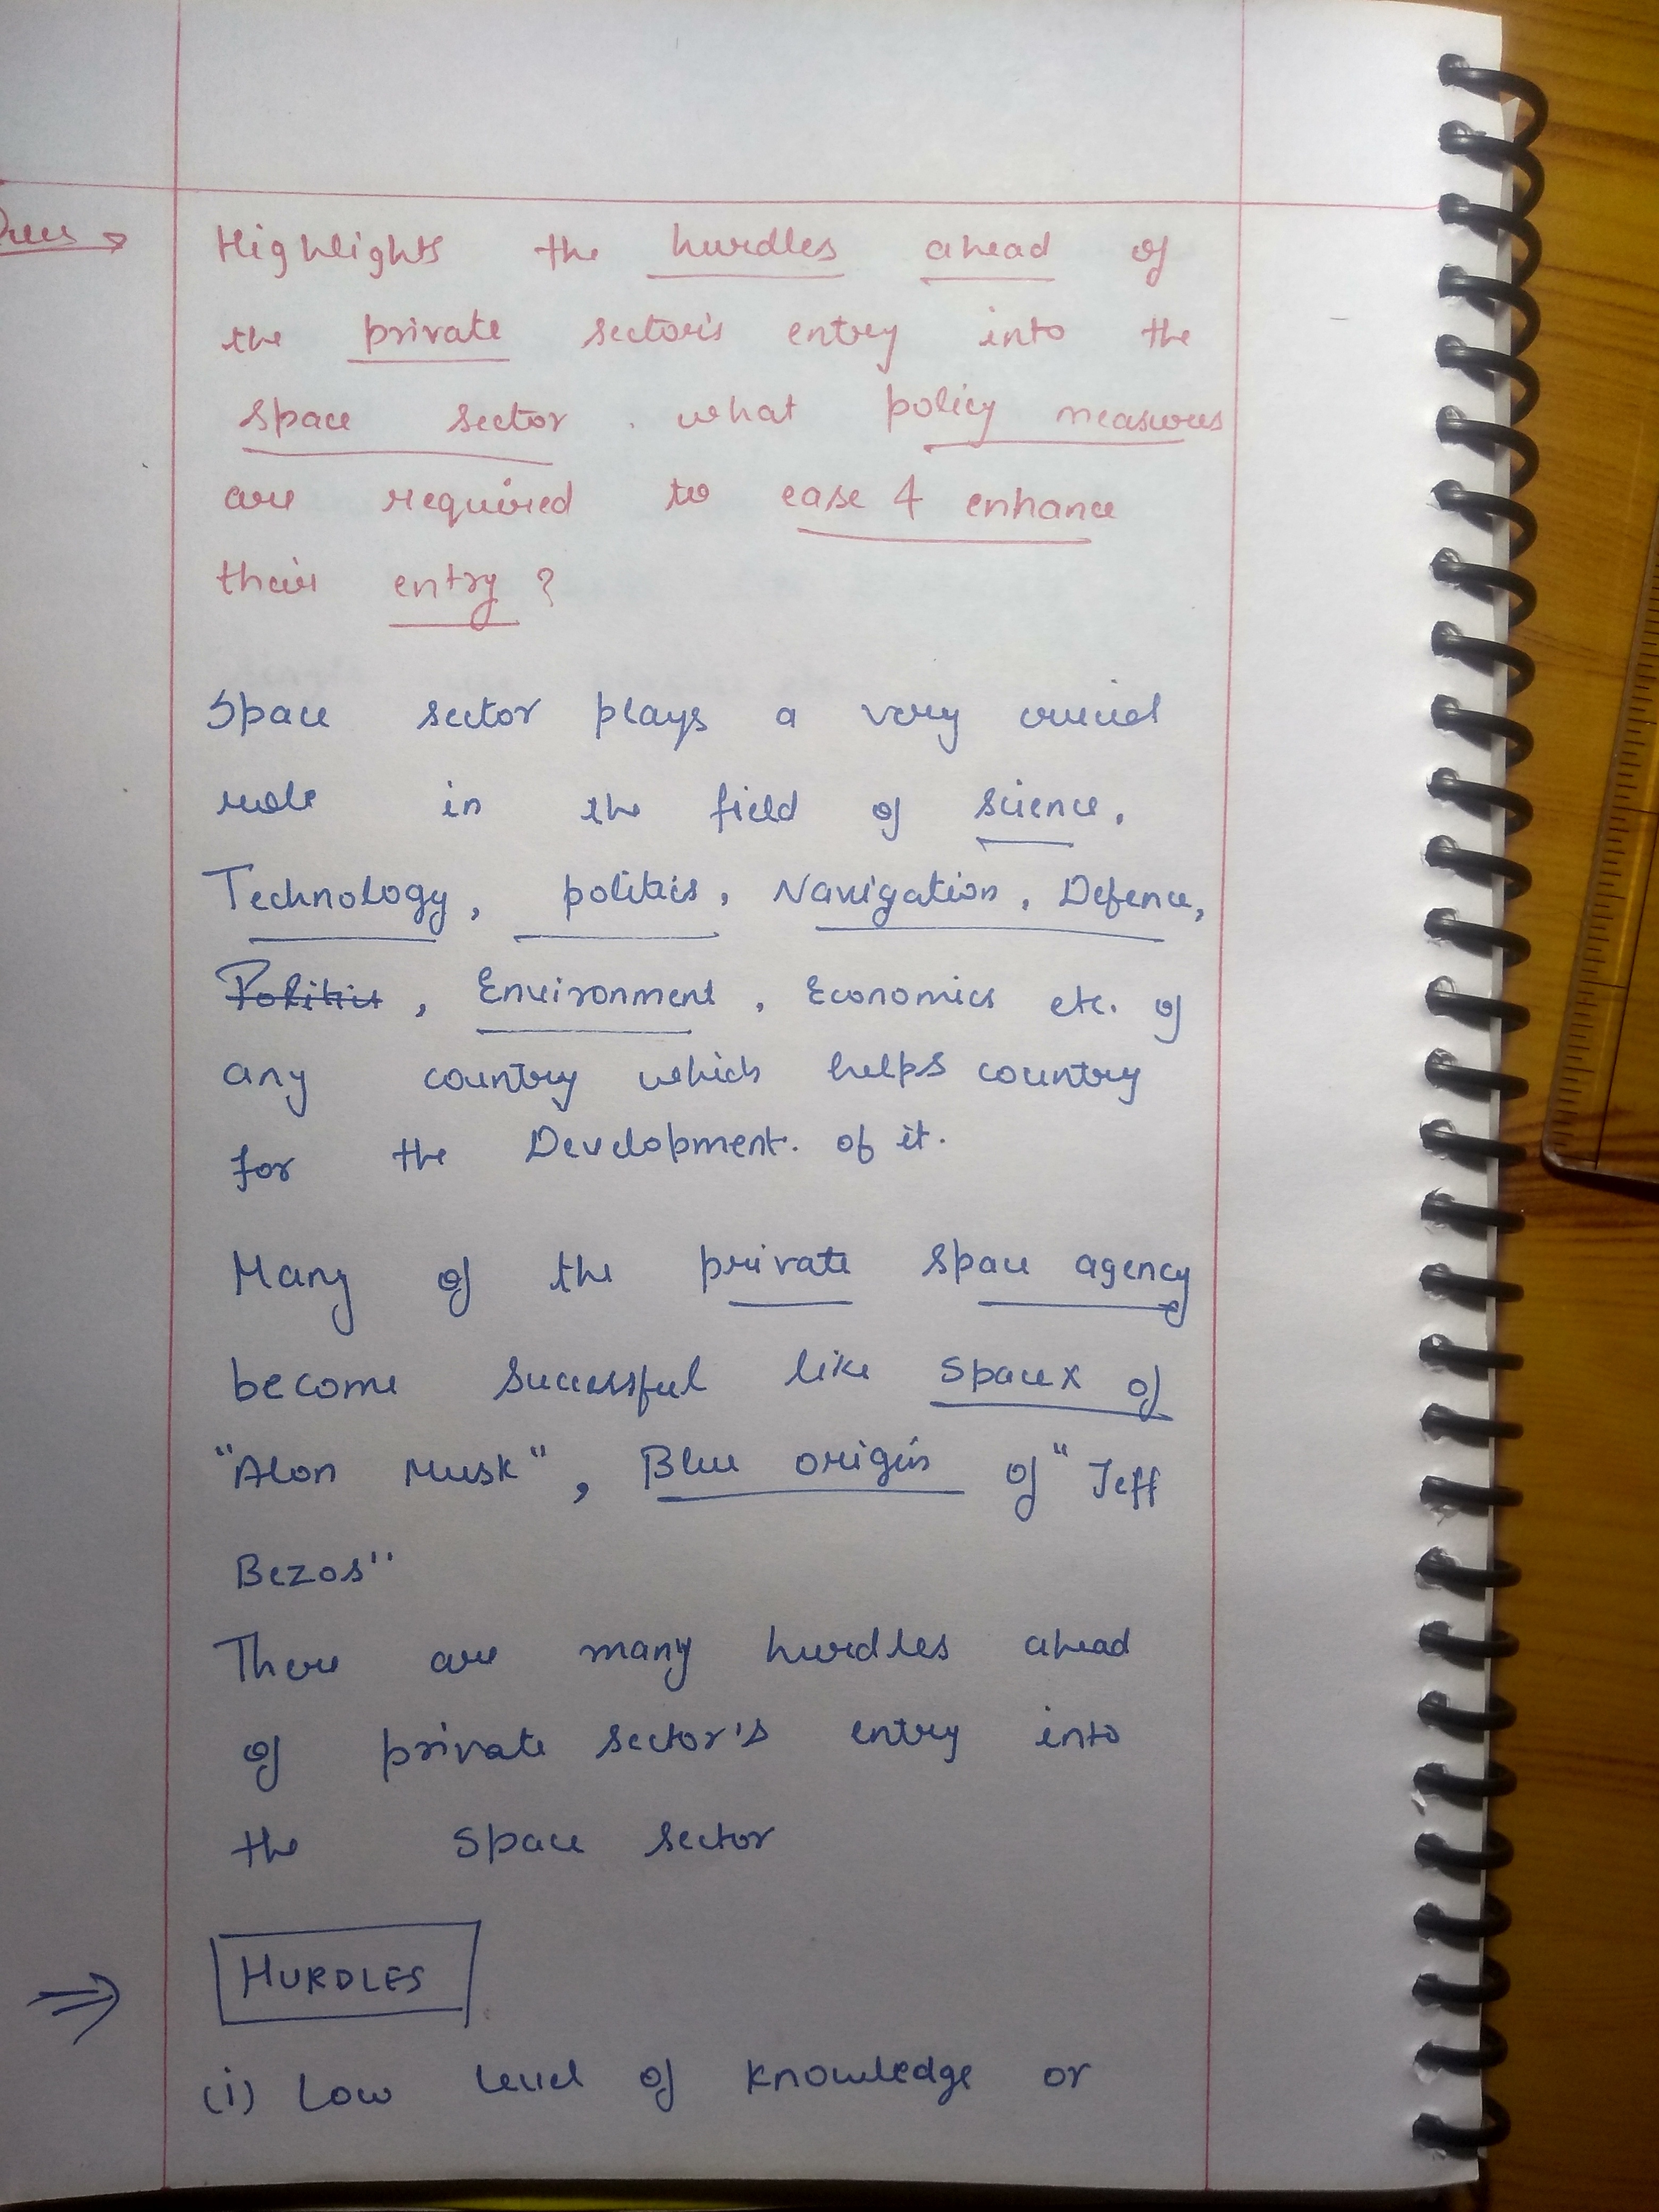 Ques → Highlights the hurdles ahead of
the private sector's entry into the
space sector. what policy measures
are required to ease & enhance
their entry ?
Space sector plays a very crucial
role in the field of science,
Technology, politics, Navigation, Defence,
Politics, Environment, Economics etc. of
any country which helps country
for the Development. of it.
Many of the private space agency
become successful like spacex of
"Alon Musk", Blue origin of "Jeff
Bezos"
There are many hurdles ahead
of private sector's entry into
the space sector
⇒ HURDLES
(i) Low level of knowledge or